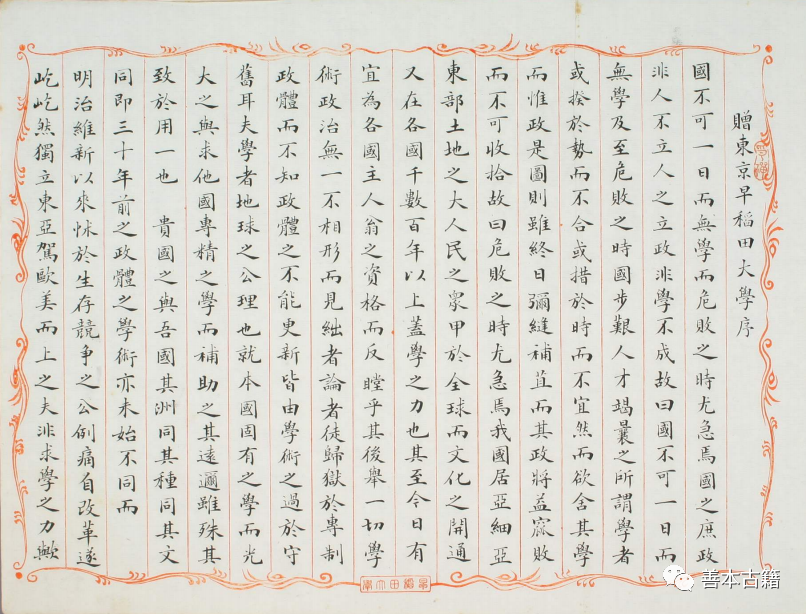 贈東京早稻田大學序
國不可一日而無學而危敗之時尤急焉國之庶政
非人不立人之立政非學不成故曰國不可一日而
無學及至危敗之時國步艱人才竭曩之所謂學者
或揆於勢而不合或措於時而不宜然而欲舍其學
而惟政是圖則雖終日彌縫補苴而其政將益窳敗
而不可收拾故曰危敗之時尤急焉我國居亞細亞
東部土地之大人民之眾甲於全球而文化之開通
又在各國千數百年以上蓋學之力也其至今日有
宜為各國主人翁之資格而反瞠乎其後舉一切學
術政治無一不相形而見絀者論者徒歸獄於專制
政體而不知政體之不能更新皆由學術之過於守
舊耳夫學者地球之公理也就本國固有之學而光
大之與求他國專精之學而補助之其遠邇雖殊其
致於用一也 貴國之與吾國其洲同其種同其文
同即三十年前之政體之學術亦未始不同而
明治維新以來怵於生存競爭之公例痛自改革遂
屹屹然獨立東亞駕歐美而上之夫非求學之力歟
善本古籍